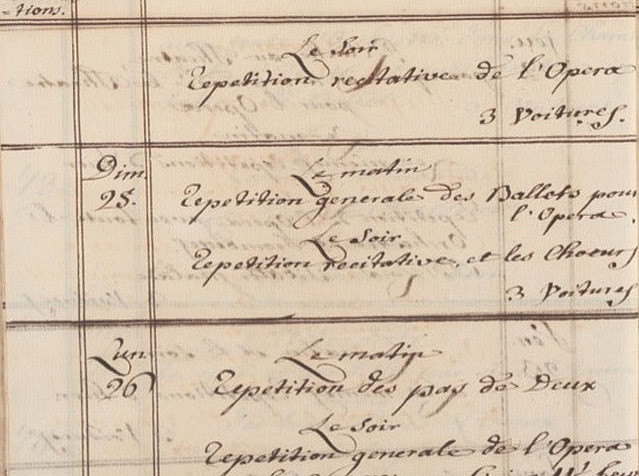 -tions.
Le Soir
Repetition recitative de l'Opera
3 Voitures.
Dim.
25.
Le matin
Repetition generale des Ballets pour
l'Opera.
Le Soir
Repetition recitative, et les Choeurs
3 Voitures
Lun.
26
Le matin
Repetition des pas de Deux
Le Soir
Repetition generale de l'Opera